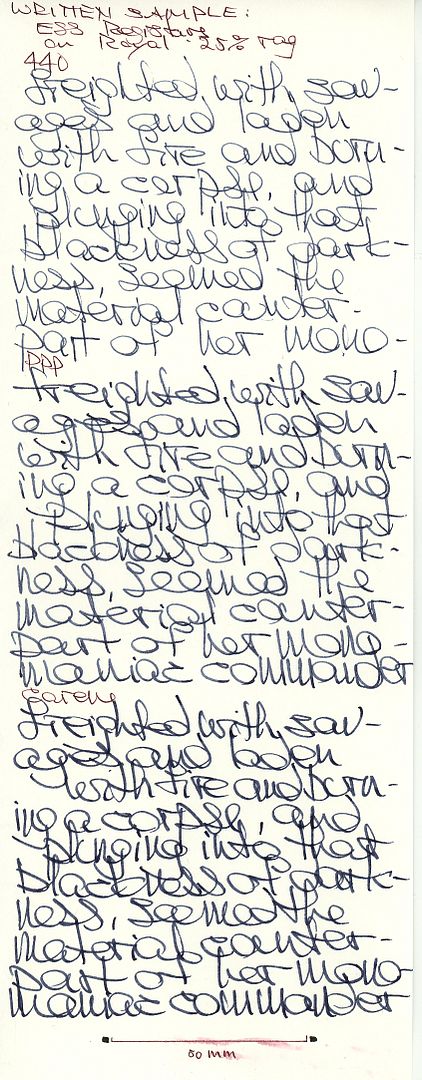 WRITTEN SAMPLE:
ESS Registrars
on Royal · 25% rag
440
freighted with sav-
ages and laden
with fire and burn-
ing a corpse, and
plunging into that
blackness of dark-
ness, seemed the
material counter-
part of her mono-
PPP
freighted with sav-
ages and laden
with fire and burn-
ing a corpse, and
plunging into that
blackness of dark-
ness, seemed the
material counter-
part of her mono-
maniac commander
Earene
freighted with sav-
ages and laden
with fire and burn-
ing a corpse, and
plunging into that
blackness of dark-
ness, seemed the
material counter-
part of her mono-
maniac commander
50 mm